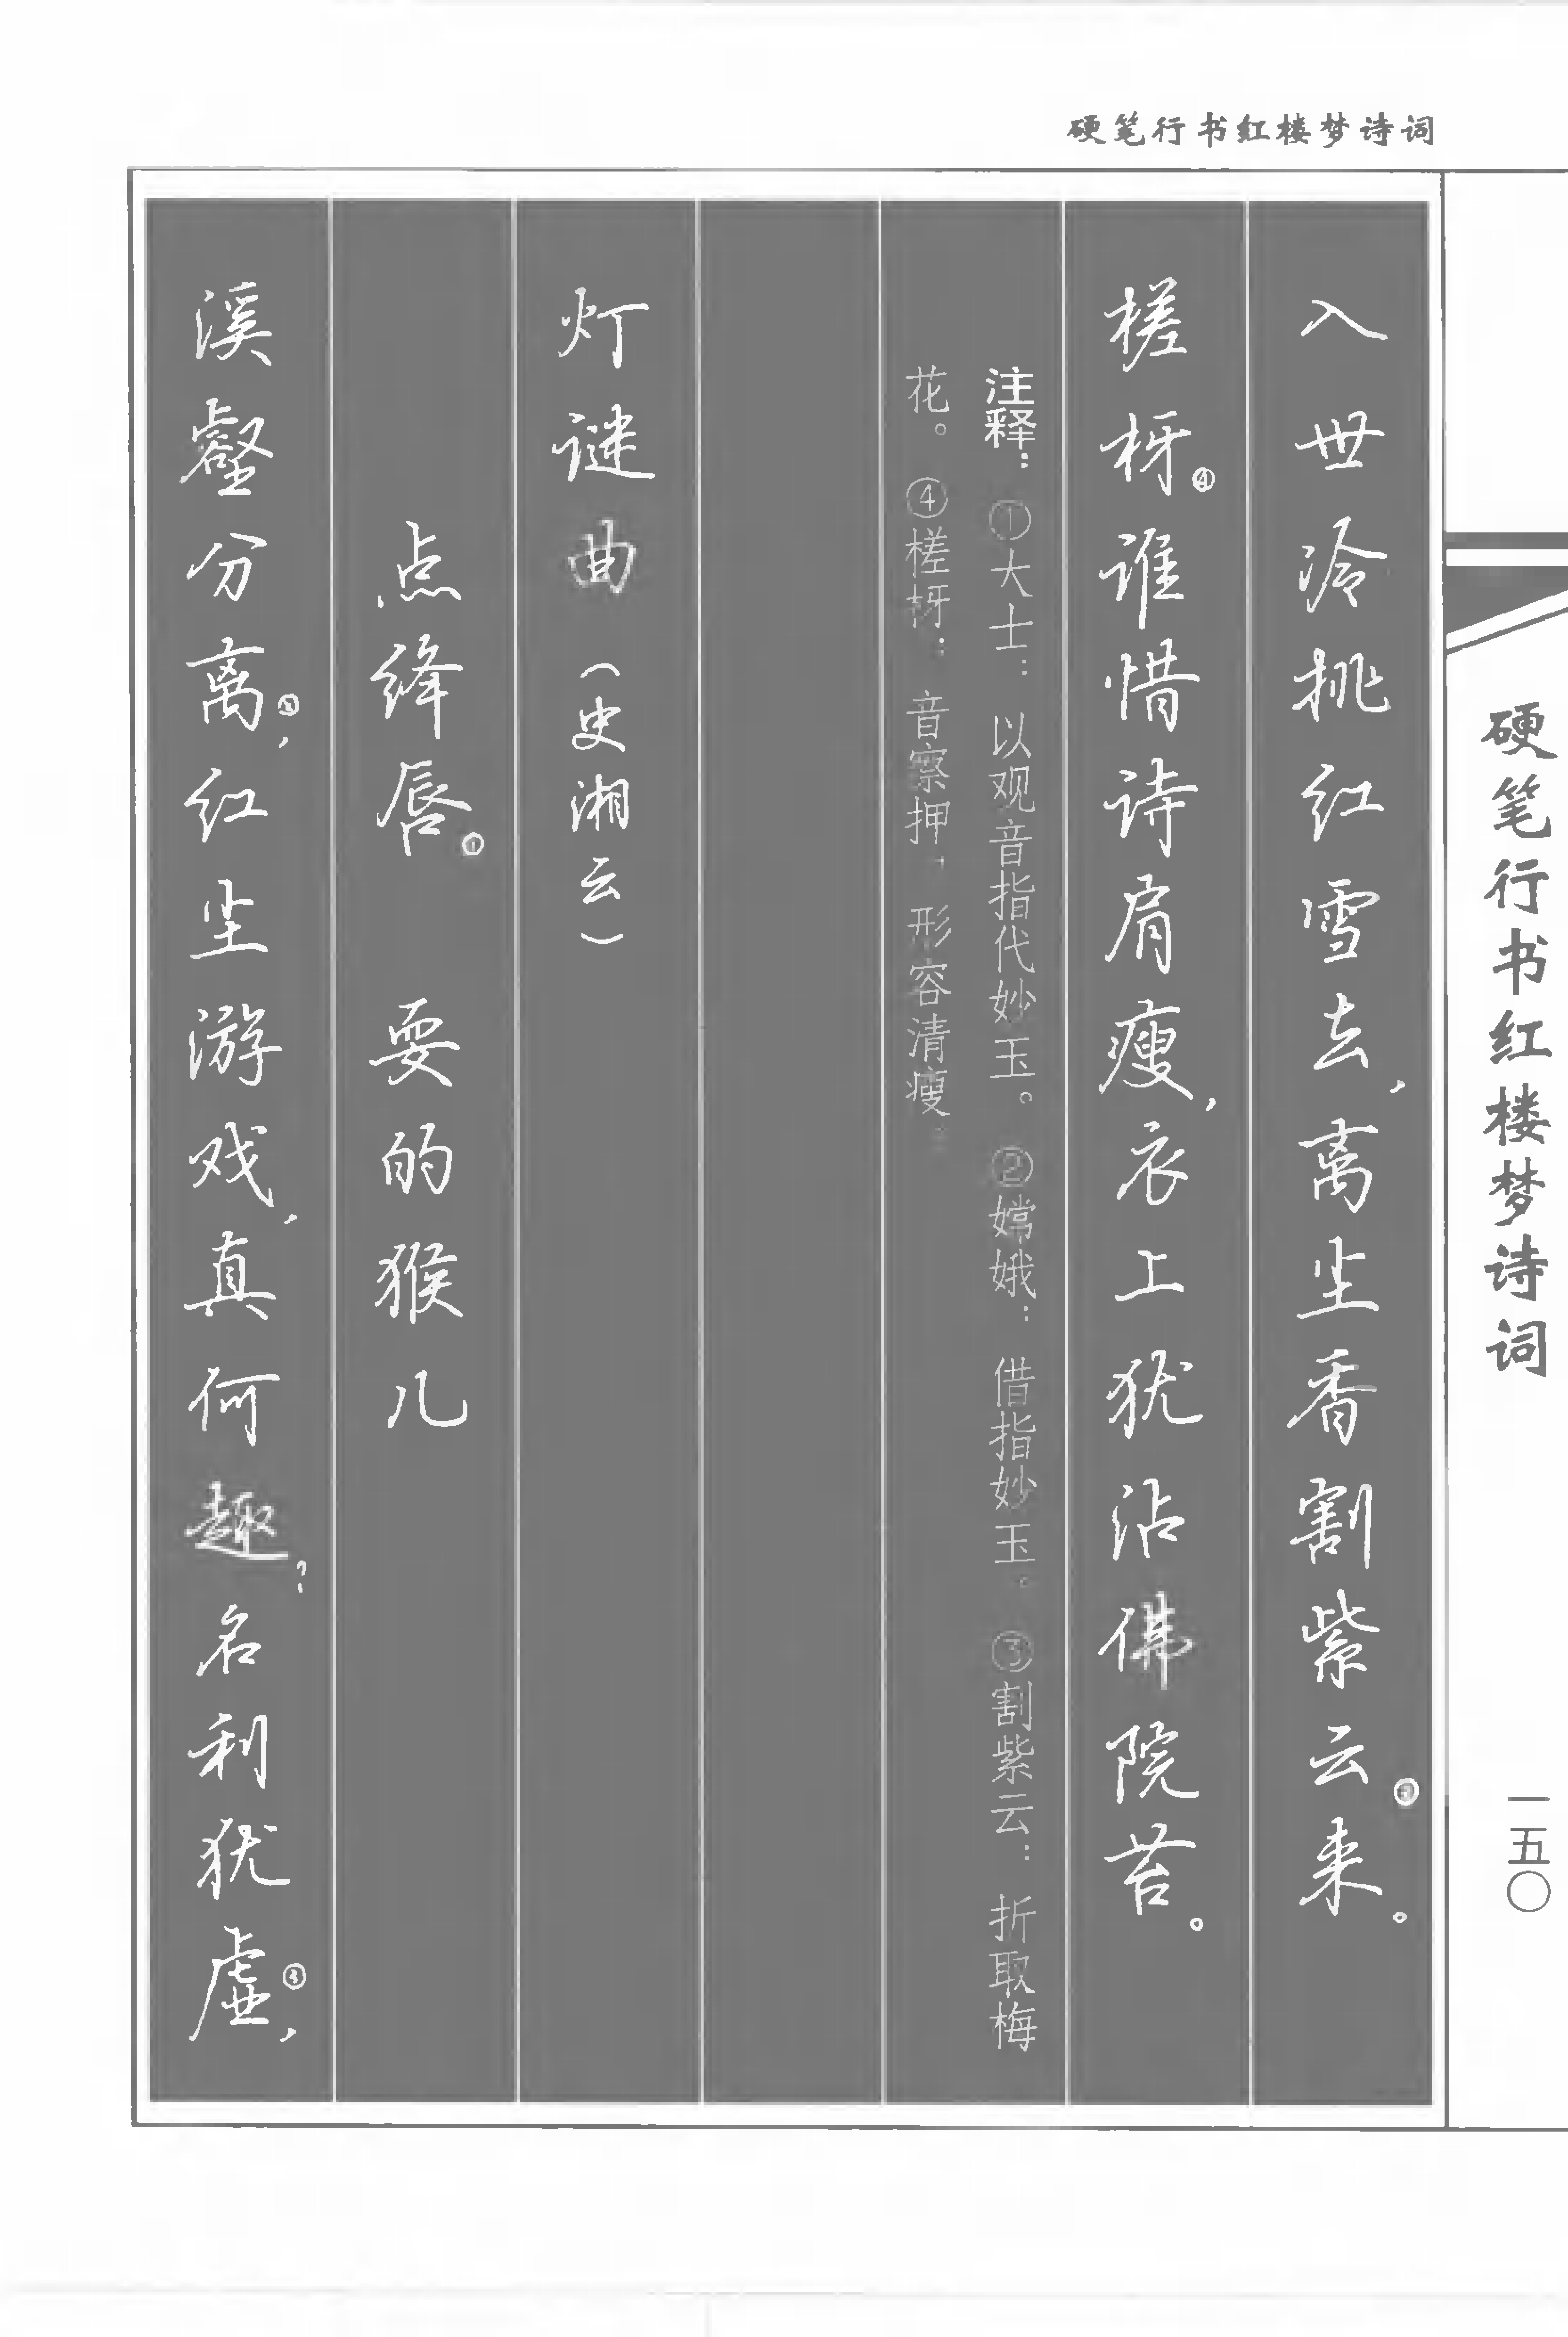 硬笔行书红楼梦诗词
入世冷挑红雪去，离尘香割紫云③来。
槎枒④谁惜诗肩瘦，衣上犹沾佛院苔。
注释：①大士：以观音指代妙玉。②嫦娥：借指妙玉。③割紫云：折取梅
花。④槎枒：音察押，形容清瘦。
灯谜曲（史湘云）
点绛唇①　耍的猴儿
溪壑分离②，红尘游戏，真何趣？名利犹虚③，
硬笔行书红楼梦诗词
一五〇